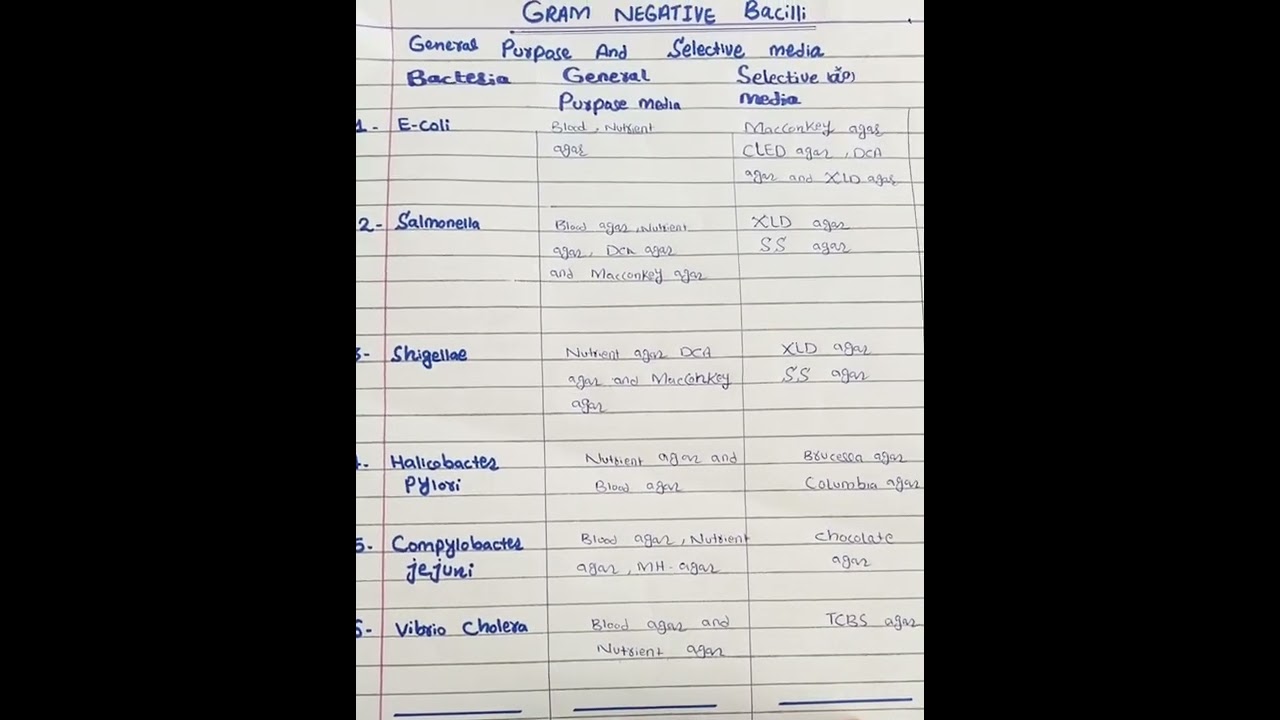 GRAM NEGATIVE Bacilli
General Purpase And Selective media
Bacteria General Selective
Purpase media media
1- E-coli Blood, Nutrient MacConkey agar
agar CLED agar, DCA
agar and XLD agar
2- Salmonella Blood agar, Nutrient XLD agar
agar, DCA agar SS agar
and Macconkey agar
3- Shigellae Nutrient agar DCA XLD agar
agar and MacConkey SS agar
agar
Halicobacter Nutrient agar and Brucella agar
Pylori Blood agar Columbia agar
5- Compylobacter Blood agar, Nutrient chocolate
jejuni agar, MH-agar agar
Vibrio Cholera Blood agar and TCBS agar
Nutrient agar